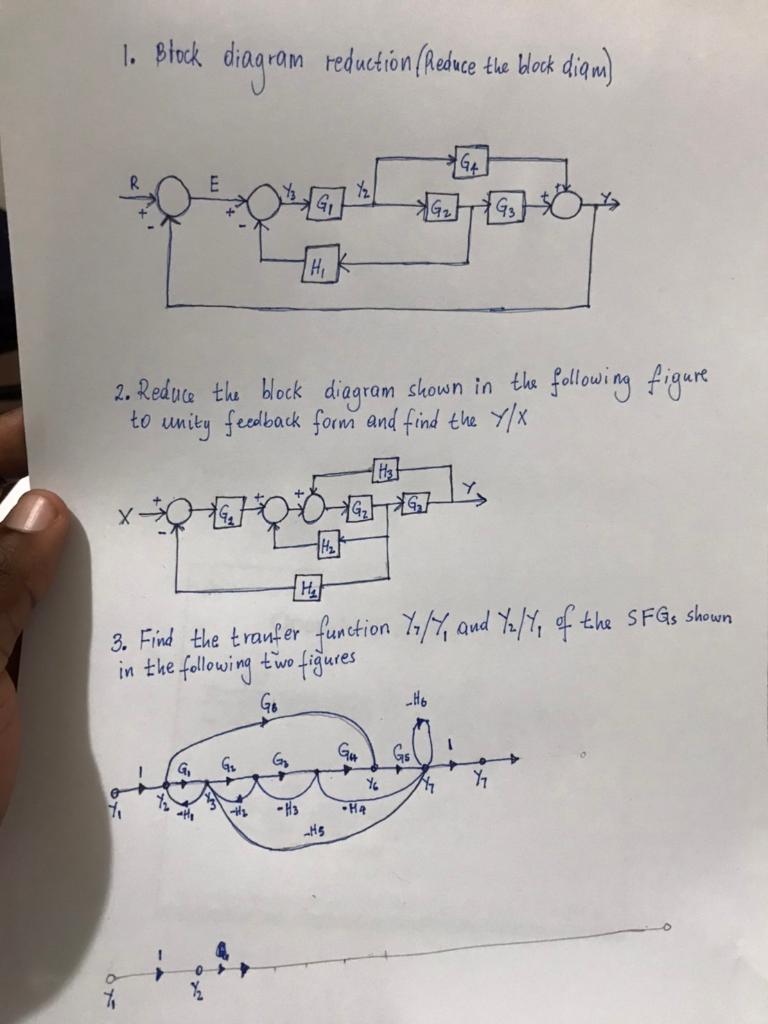 1. Block diagram reduction (Reduce the block diam)
G4
R E Y3 G1 Y2 G2 G3 Y
+ - + - + +
H1
2. Reduce the block diagram shown in the following figure
to unity feedback form and find the Y/X
H3
X + G1 + + G2 G3 Y
-
H2
H1
3. Find the tranfer function Y7/Y1 and Y2/Y1 of the SFGs shown
in the following two figures
G6 -H6
1 G1 G2 G3 G4 G5 1
Y1 Y2 Y3 Y6 Y7 Y7
-H1 -H2 -H3 -H4
-H5
1
Y1 Y2